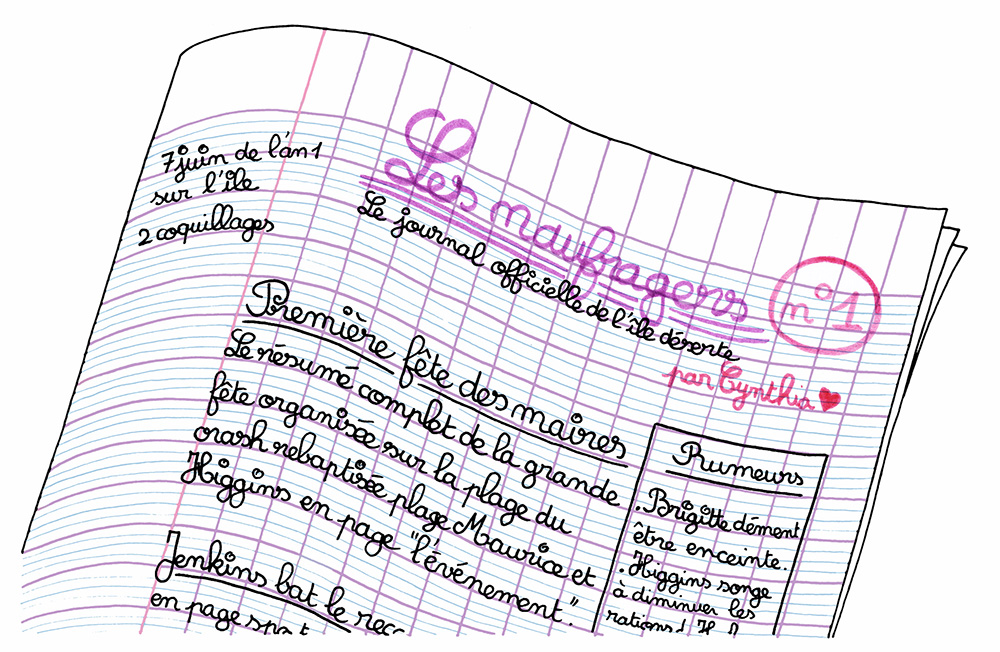 7 juin de l'an 1
sur l'île
2 coquillages
Les naufragers
n°1
Le journal officielle de l'île déserte
par Cynthia ♥
Première fête des maires
Le résumé complet de la grande
fête organisée sur la plage du
crash rebaptisée plage Maurice et
Higgins en page "l'événement".
Jenkins bat le rec
en page sport
Rumeurs
. Brigitte dément
être enceinte.
. Higgins songe
à diminuer les
rations